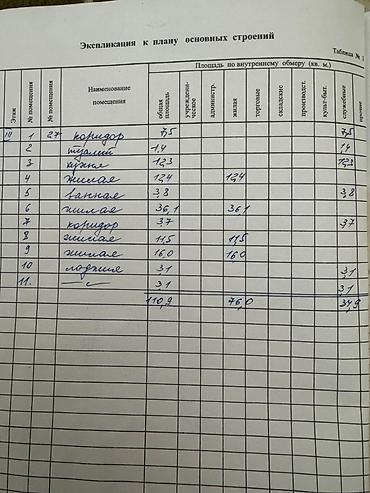 Экспликация к плану основных строений
Таблица № 1
Этаж
№ помещения
№ помещения
Наименование помещения
Площадь по внутреннему обмеру (кв. м.)
общая площадь
учрежденческое
администр.
жилая
торговые
складские
производст.
культ-быт.
служебные
прочие
III 1 27 коридор 7,5 7,5
2 туалет 1,4 1,4
3 кухня 12,3 12,3
4 жилая 12,4 12,4
5 ванная 3,8 3,8
6 жилая 36,1 36,1
7 коридор 3,7 3,7
8 жилая 11,5 11,5
9 жилая 16,0 16,0
10 лоджия 3,1 3,1
11. —"— 3,1 3,1
110,9 76,0 34,9